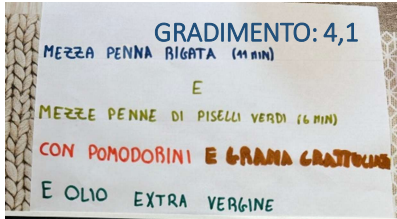 GRADIMENTO: 4,1
MEZZA PENNA RIGATA (11 MIN)
E
MEZZE PENNE DI PISELLI VERDI (6 MIN)
CON POMODORINI E GRANA
E OLIO EXTRA VERGINE